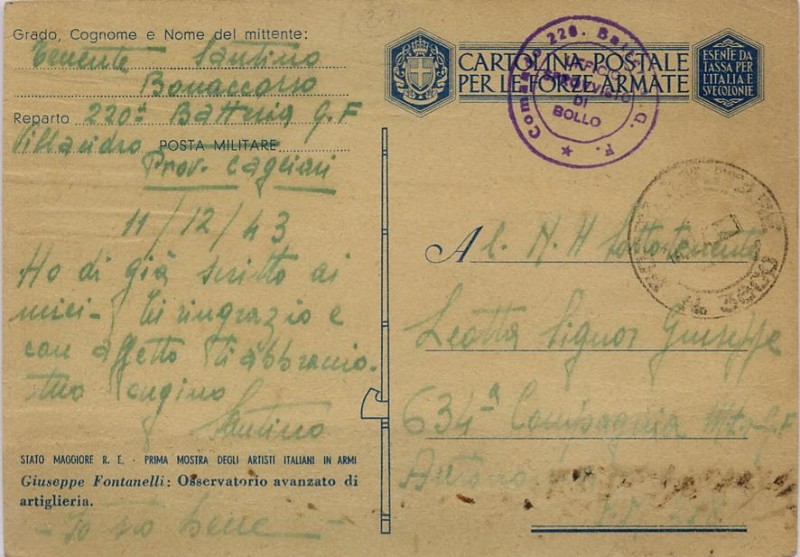 Grado, Cognome e Nome del mittente:
Tenente Santino
Bonaccorso
Reparto 220ª Batteria G.F
Villasidro POSTA MILITARE
Prov. Cagliari
11/12/43
Ho di già scritto ai
miei - Ti ringrazio e
con affetto ti abbraccio.
tuo cugino
Santino
STATO MAGGIORE R. E. - PRIMA MOSTRA DEGLI ARTISTI ITALIANI IN ARMI
Giuseppe Fontanelli: Osservatorio avanzato di
artiglieria.
- Io sto bene -
CARTOLINA POSTALE
PER LE FORZE ARMATE
ESENTE DA
TASSA PER
L'ITALIA E
SVE COLONIE
Comando 220. Batt. G. F.
UFFICIO
SPROVVISTO
DI
BOLLO
Al. N. H Sottotenente
Leotta Signor Giuseppe
634ª Compagnia Mtr. G.F
N. 3800